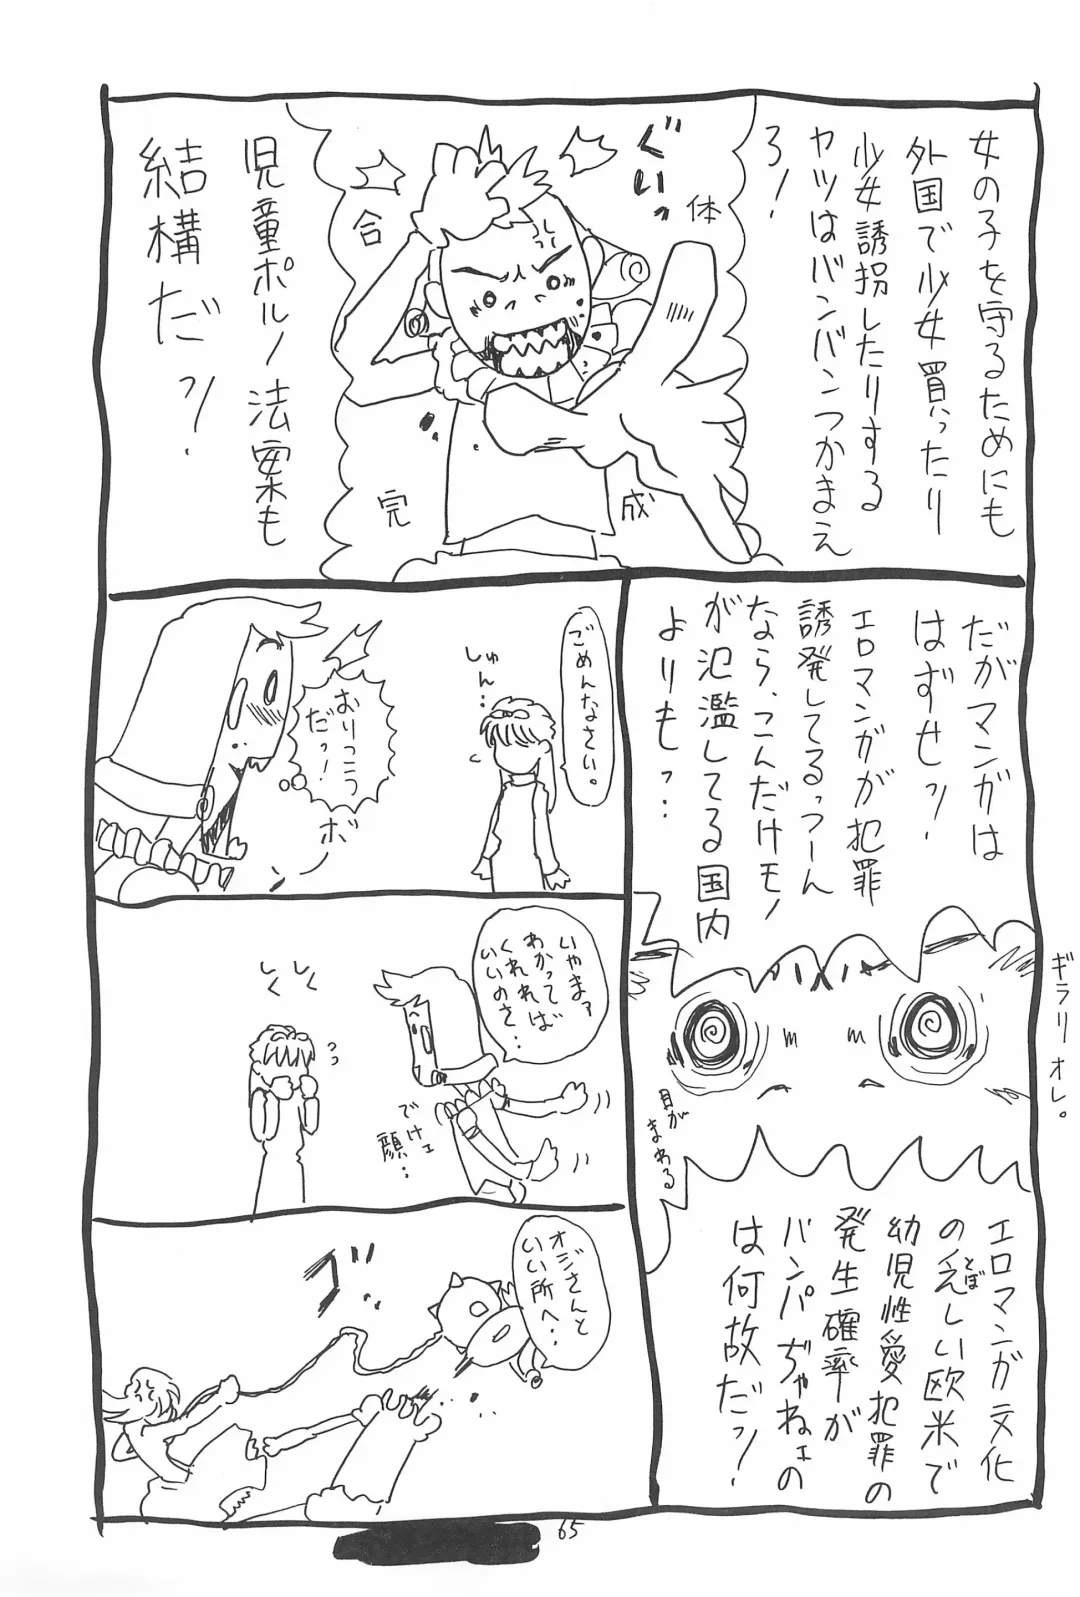 女の子を守るためにも
外国で少女買ったり
少女誘拐したりする
ヤツはバンバンつかまえ
ろ!
ぐいっ
体
合
成
完
児童ポルノ法案も
結構だっ!
だがマンガは
はずせっ!
エロマンガが犯罪
誘発してるっつーん
なら、こんだけモノ
が氾濫してる国内
よりもっ…
ギラリオレ。
目が
まわる
エロマンガ文化
のとぼしい欧米で
幼児性愛犯罪の
発生確率が
バンパぢゃねェの
は何故だっ!
ごめんなさい。
しゅん…
おりこう
だっ!
ボ
ン
いやまァ
わかって
くれれば
いいのさ…
でけェ
顔…
しく
しく
オジさんと
いい所へ…
ゴ
65